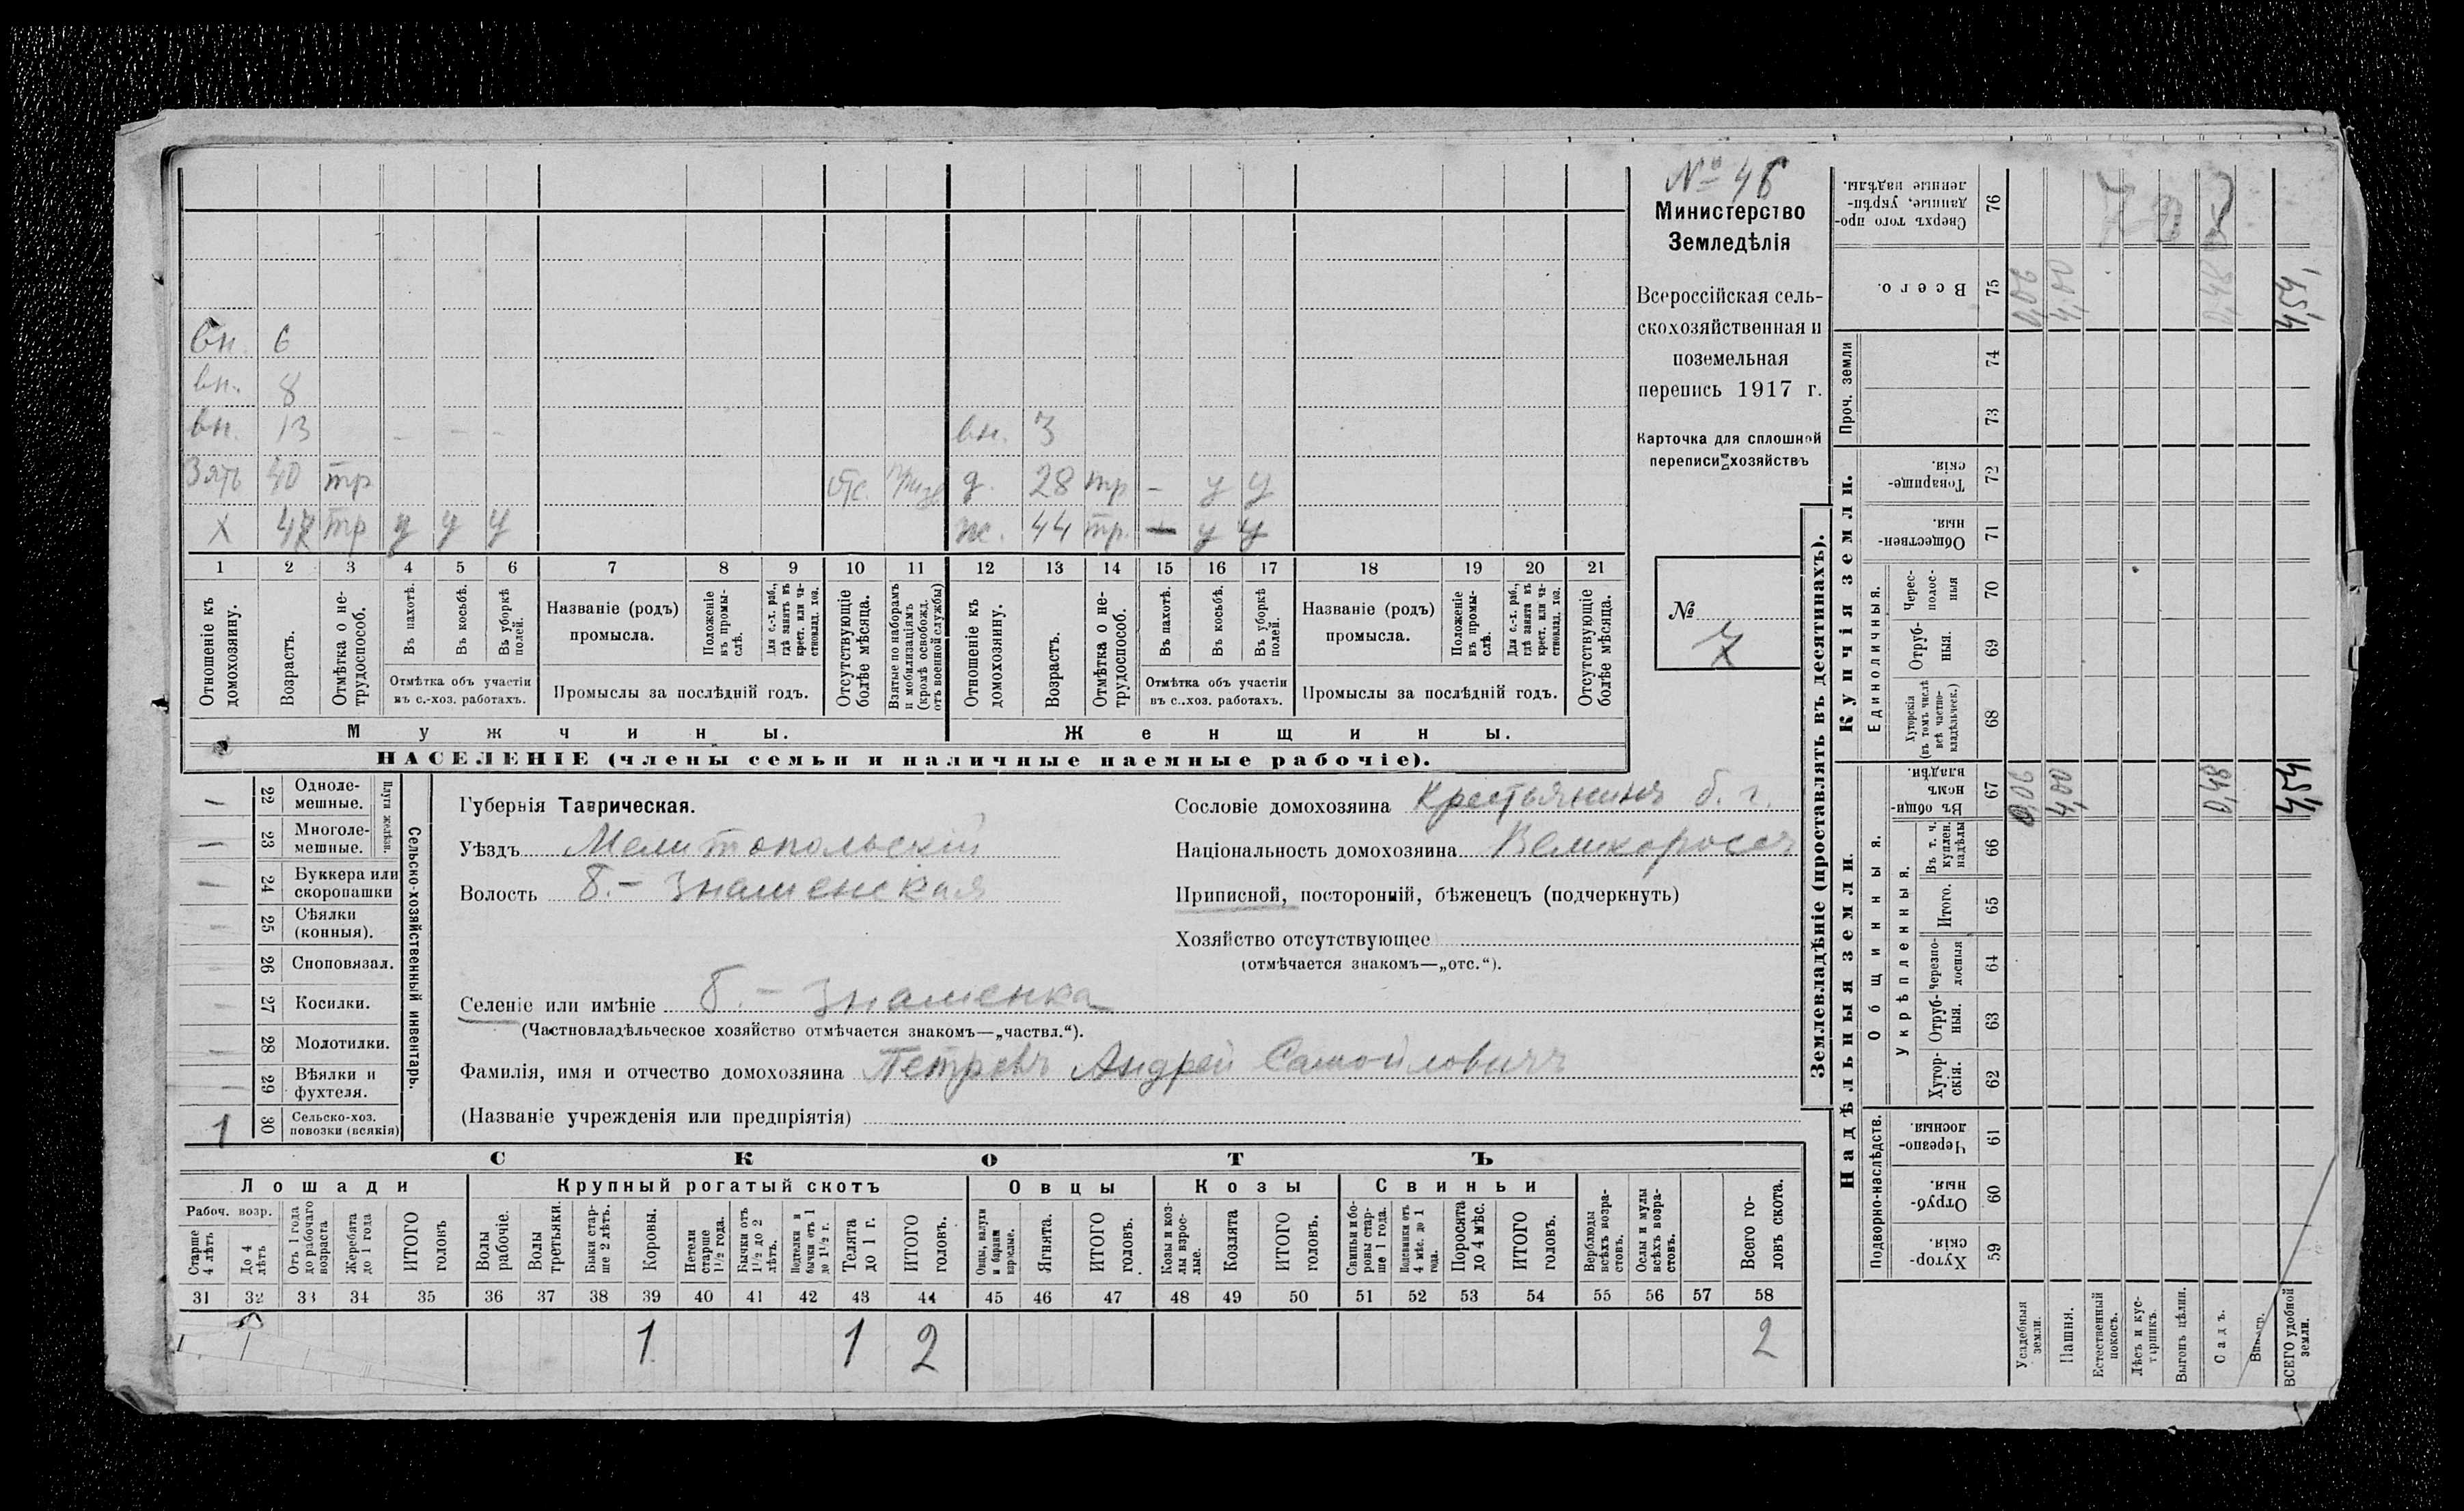 № 46
Министерство
Земледѣлія
Всероссійская сель-
скохозяйственная и
поземельная
перепись 1917 г.
Карточка для сплошной
переписи хозяйствъ
№
7
вн. 6
вн. 8
вн. 13 - - - вн. 3
Зять 40 тр отс. д. 28 тр - у у
х 47 тр у у у ж. 44 тр. - у у
1 2 3 4 5 6 7 8 9 10 11 12 13 14 15 16 17 18 19 20 21
Отношеніе къ домохозяину.
Возрастъ.
Отмѣтка о не-трудоспособ.
Въ пахотѣ.
Въ косьбѣ.
Въ уборкѣ полей.
Отмѣтка объ участіи въ с.-хоз. работахъ.
Названіе (родъ) промысла.
Положеніе въ промы-слѣ.
Для с.-х. раб., гдѣ занятъ въ крест. или ча-стновлад. хоз.
Промыслы за послѣдній годъ.
Отсутствующіе болѣе мѣсяца.
Взятые по наборамъ и мобилизаціямъ (кромѣ освобожд. отъ военной службы)
Отношеніе къ домохозяину.
Возрастъ.
Отмѣтка о не-трудоспособ.
Въ пахотѣ.
Въ косьбѣ.
Въ уборкѣ полей.
Отмѣтка объ участіи въ с.-хоз. работахъ.
Названіе (родъ) промысла.
Положеніе въ промы-слѣ.
Для с.-х. раб., гдѣ занята въ крест. или ча-стновлад. хоз.
Промыслы за послѣдній годъ.
Отсутствующіе болѣе мѣсяца.
Мужчины. Женщины.
НАСЕЛЕНІЕ (члены семьи и наличные наемные рабочіе).
Сельско-хозяйственный инвентарь.
Плуги желѣзн.
- 22 Одноле-мешные.
- 23 Многоле-мешные.
- 24 Буккера или скоропашки
- 25 Сѣялки (конныя).
- 26 Сноповязал.
- 27 Косилки.
- 28 Молотилки.
- 29 Вѣялки и фухтеля.
1 30 Сельско-хоз. повозки (всякія)
Губернія Таврическая.
Уѣздъ Мелитопольскій
Волость Б.- Знаменская
Сословіе домохозяина Крестьянинъ б. г.
Національность домохозяина Великороссъ
Приписной, посторонній, бѣженецъ (подчеркнуть)
Хозяйство отсутствующее
(отмѣчается знакомъ—„отс.“).
Селеніе или имѣніе Б.- Знаменка
(Частновладѣльческое хозяйство отмѣчается знакомъ—„частвл.“).
Фамилія, имя и отчество домохозяина Петровъ Андрей Самойловичъ
(Названіе учрежденія или предпріятія)
СКОТЪ
Лошади Крупный рогатый скотъ Овцы Козы Свиньи
Рабоч. возр.
Старше 4 лѣтъ
До 4 лѣтъ
Отъ 1 года до рабочаго возраста
Жеребята до 1 года
ИТОГО головъ
Волы рабочіе.
Волы третьяки.
Быки стар-ше 2 лѣтъ.
Коровы.
Нетели старше 1½ года.
Бычки отъ 1½ до 2 лѣтъ.
Подтелки и бычки отъ 1 до 1½ г.
Телята до 1 г.
ИТОГО головъ.
Овцы, валухи и бараны взрослые.
Ягнята.
ИТОГО головъ.
Козы и коз-лы взрос-лые.
Козлята
ИТОГО головъ.
Свиньи и бо-ровы стар-ше 1 года.
Подсвинки отъ 4 мѣс. до 1 года.
Поросята до 4 мѣс.
ИТОГО головъ.
Верблюды всѣхъ возра-стовъ.
Ослы и мулы всѣхъ возра-стовъ.
Всего го-ловъ скота.
31 32 33 34 35 36 37 38 39 40 41 42 43 44 45 46 47 48 49 50 51 52 53 54 55 56 57 58
1 1 2 2
Землевладѣніе (проставлять въ десятинахъ).
Надѣльныя земли. Купчія земли.
Проч. земли
Подворно-наслѣдств.
Общинныя.
Укрѣпленныя.
Единоличныя.
59 Хутор-скія.
60 Отруб-ныя.
61 Черезпо-лосныя
62 Хутор-скія.
63 Отруб-ныя.
64 Черезпо-лосныя
65 Итого.
66 Въ т. ч. куплен. надѣлы
67 Въ общи-номъ владѣн.
68 Хуторскія (въ томъ числѣ всѣ частно-владѣльческ.)
69 Отруб-ныя.
70 Черес-полос-ныя
71 Обществен-ныя.
72 Товарище-скія.
73
74
75 Всего.
76 Сверхъ того про-данные, укрѣп-ленные надѣлы.
Усадебныя земли. 0,06 0,06
Пашня. 4,00 4,00
Естественный покосъ.
Лѣсъ и кус-тарникъ.
Выгонъ цѣлин.
Садъ. 0,48 0,48
Виногр.
ВСЕГО удобной земли. 4,54 4,54